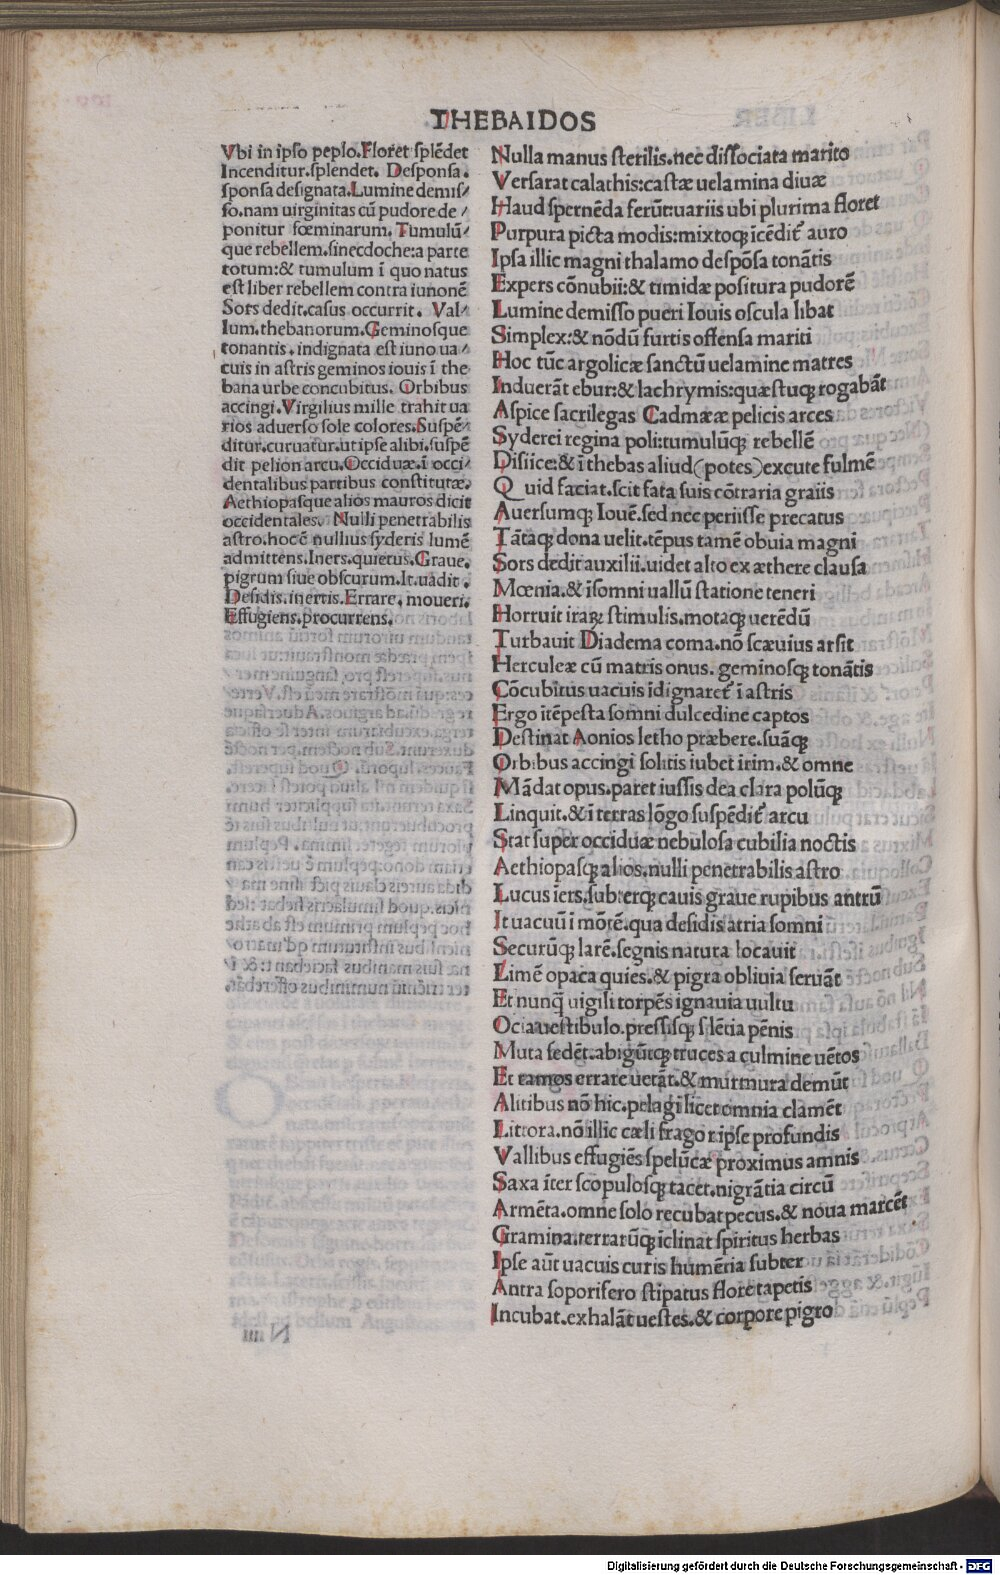 THEBAIDOS
Vbi in ipso peplo.Floret splēdet
Incenditur.splendet. Desponsa.
sponsa designata.Lumine demis/
so.nam uirginitas cū pudore de/
ponitur fœminarum. Tumulū/
que rebellem.sinecdoche:a parte
totum:& tumulum ī quo natus
est liber rebellem contra iunonē
Sors dedit.casus occurrit. Val/
lum.thebanorum.Geminosque
tonantis.indignata est iuno ua/
cuis in astris geminos iouis ī the
bana urbe concubitus. Orbibus
accingi.Virgilius mille trahit ua
rios aduerso sole colores.Suspē/
ditur.curuatur.ut ipse alibi.suspē
dit pelion arcu.Occiduæ.ī occi/
dentalibus partibus constitutæ.
Aethiopasque alios mauros dicit
occidentales. Nulli penetrabilis
astro.hocē nullius syderis lumē
admittens.Iners.quietus.Graue.
pigrum siue obscurum.It.uadit.
Desidis.inertis.Errare.moueri.
Effugiens.procurrens.
Nulla manus sterilis.nec dissociata marito
Versarat calathis:castæ uelamina diuæ
Haud spernēda ferūt:uariis ubi plurima floret
Purpura picta modis:mixtoqꝫ īcēdit᷑ auro
Ipsa illic magni thalamo despōsa tonātis
Expers cōnubii:& timidæ positura pudorē
Lumine demisso pueri Iouis oscula libat
Simplex:& nōdū furtis offensa mariti
Hoc tūc argolicæ sanctū uelamine matres
Induerāt ebur:& lachrymis:quæstuqꝫ rogabāt
Aspice sacrilegas Cadmææ pelicis arces
Syderei regina poli:tumulūqꝫ rebellē
Disiice:& ī thebas aliud(potes)excute fulmē
Quid faciat.scit fata suis cōtraria graiis
Auersumqꝫ Iouē.sed nec periisse precatus
Tātaqꝫ dona uelit.tēpus tamē obuia magni
Sors dedit auxilii.uidet alto ex æthere clausa
Mœnia.& īsomni uallū statione teneri
Horruit iraꝝ stimulis.motaqꝫ uerēdū
Turbauit Diadema coma.nō scæuius arsit
Herculeæ cū matris onus. geminosqꝫ tonātis
Cōcubitus uacuis īdignaret᷑ ī astris
Ergo ītēpesta somni dulcedine captos
Destinat Aonios letho præbere.suāqꝫ
Orbibus accingi solitis iubet irim.& omne
Mādat opus.paret iussis dea clara polūqꝫ
Linquit.& ī terras lōgo suspēdit᷑ arcu
Stat super occiduæ nebulosa cubilia noctis
Aethiopasqꝫ alios.nulli penetrabilis astro
Lucus īers.subterqꝫ cauis graue rupibus antrū
It uacuū ī mōtē.qua desidis atria somni
Securūqꝫ larē.segnis natura locauit
Limē opaca quies.& pigra obliuia seruāt
Et nunq̄ uigili torpēs ignauia uultu
Ocia uestibulo.pressisqꝫ silētia pēnis
Muta sedēt.abigūtqꝫ truces a culmine uētos
Et ramos errare uetāt.& murmura demūt
Alitibus nō hic.pelagi licet omnia clamēt
Littora.nō illic cæli fragor.ipse profundis
Vallibus effugiēs spelūcæ proximus amnis
Saxa īter scopulosqꝫ tacet.nigrātia circū
Armēta.omne solo recubat pecus.& noua marcēt
Gramina.terrarūqꝫ īclinat spiritus herbas
Ipse aūt uacuis curis humētia subter
Antra soporifero stipatus flore tapetis
Incubat.exhalāt uestes.& corpore pigro
Digitalisierung gefördert durch die Deutsche Forschungsgemeinschaft - DFG